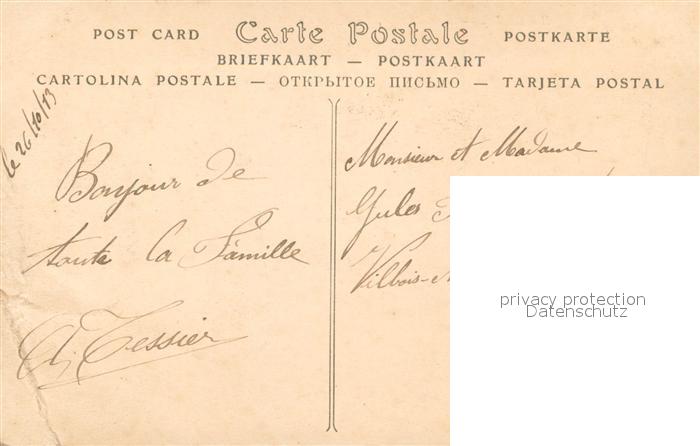 POST CARD Carte Postale POSTKARTE
BRIEFKAART — POSTKAART
CARTOLINA POSTALE — ОТКРЫТОЕ ПИСЬМО — TARJETA POSTAL
le 26/10/13
Bonjour de
toute la Famille
A. Tessier
Monsieur et Madame
Jules
Villbois-
privacy protection
Datenschutz